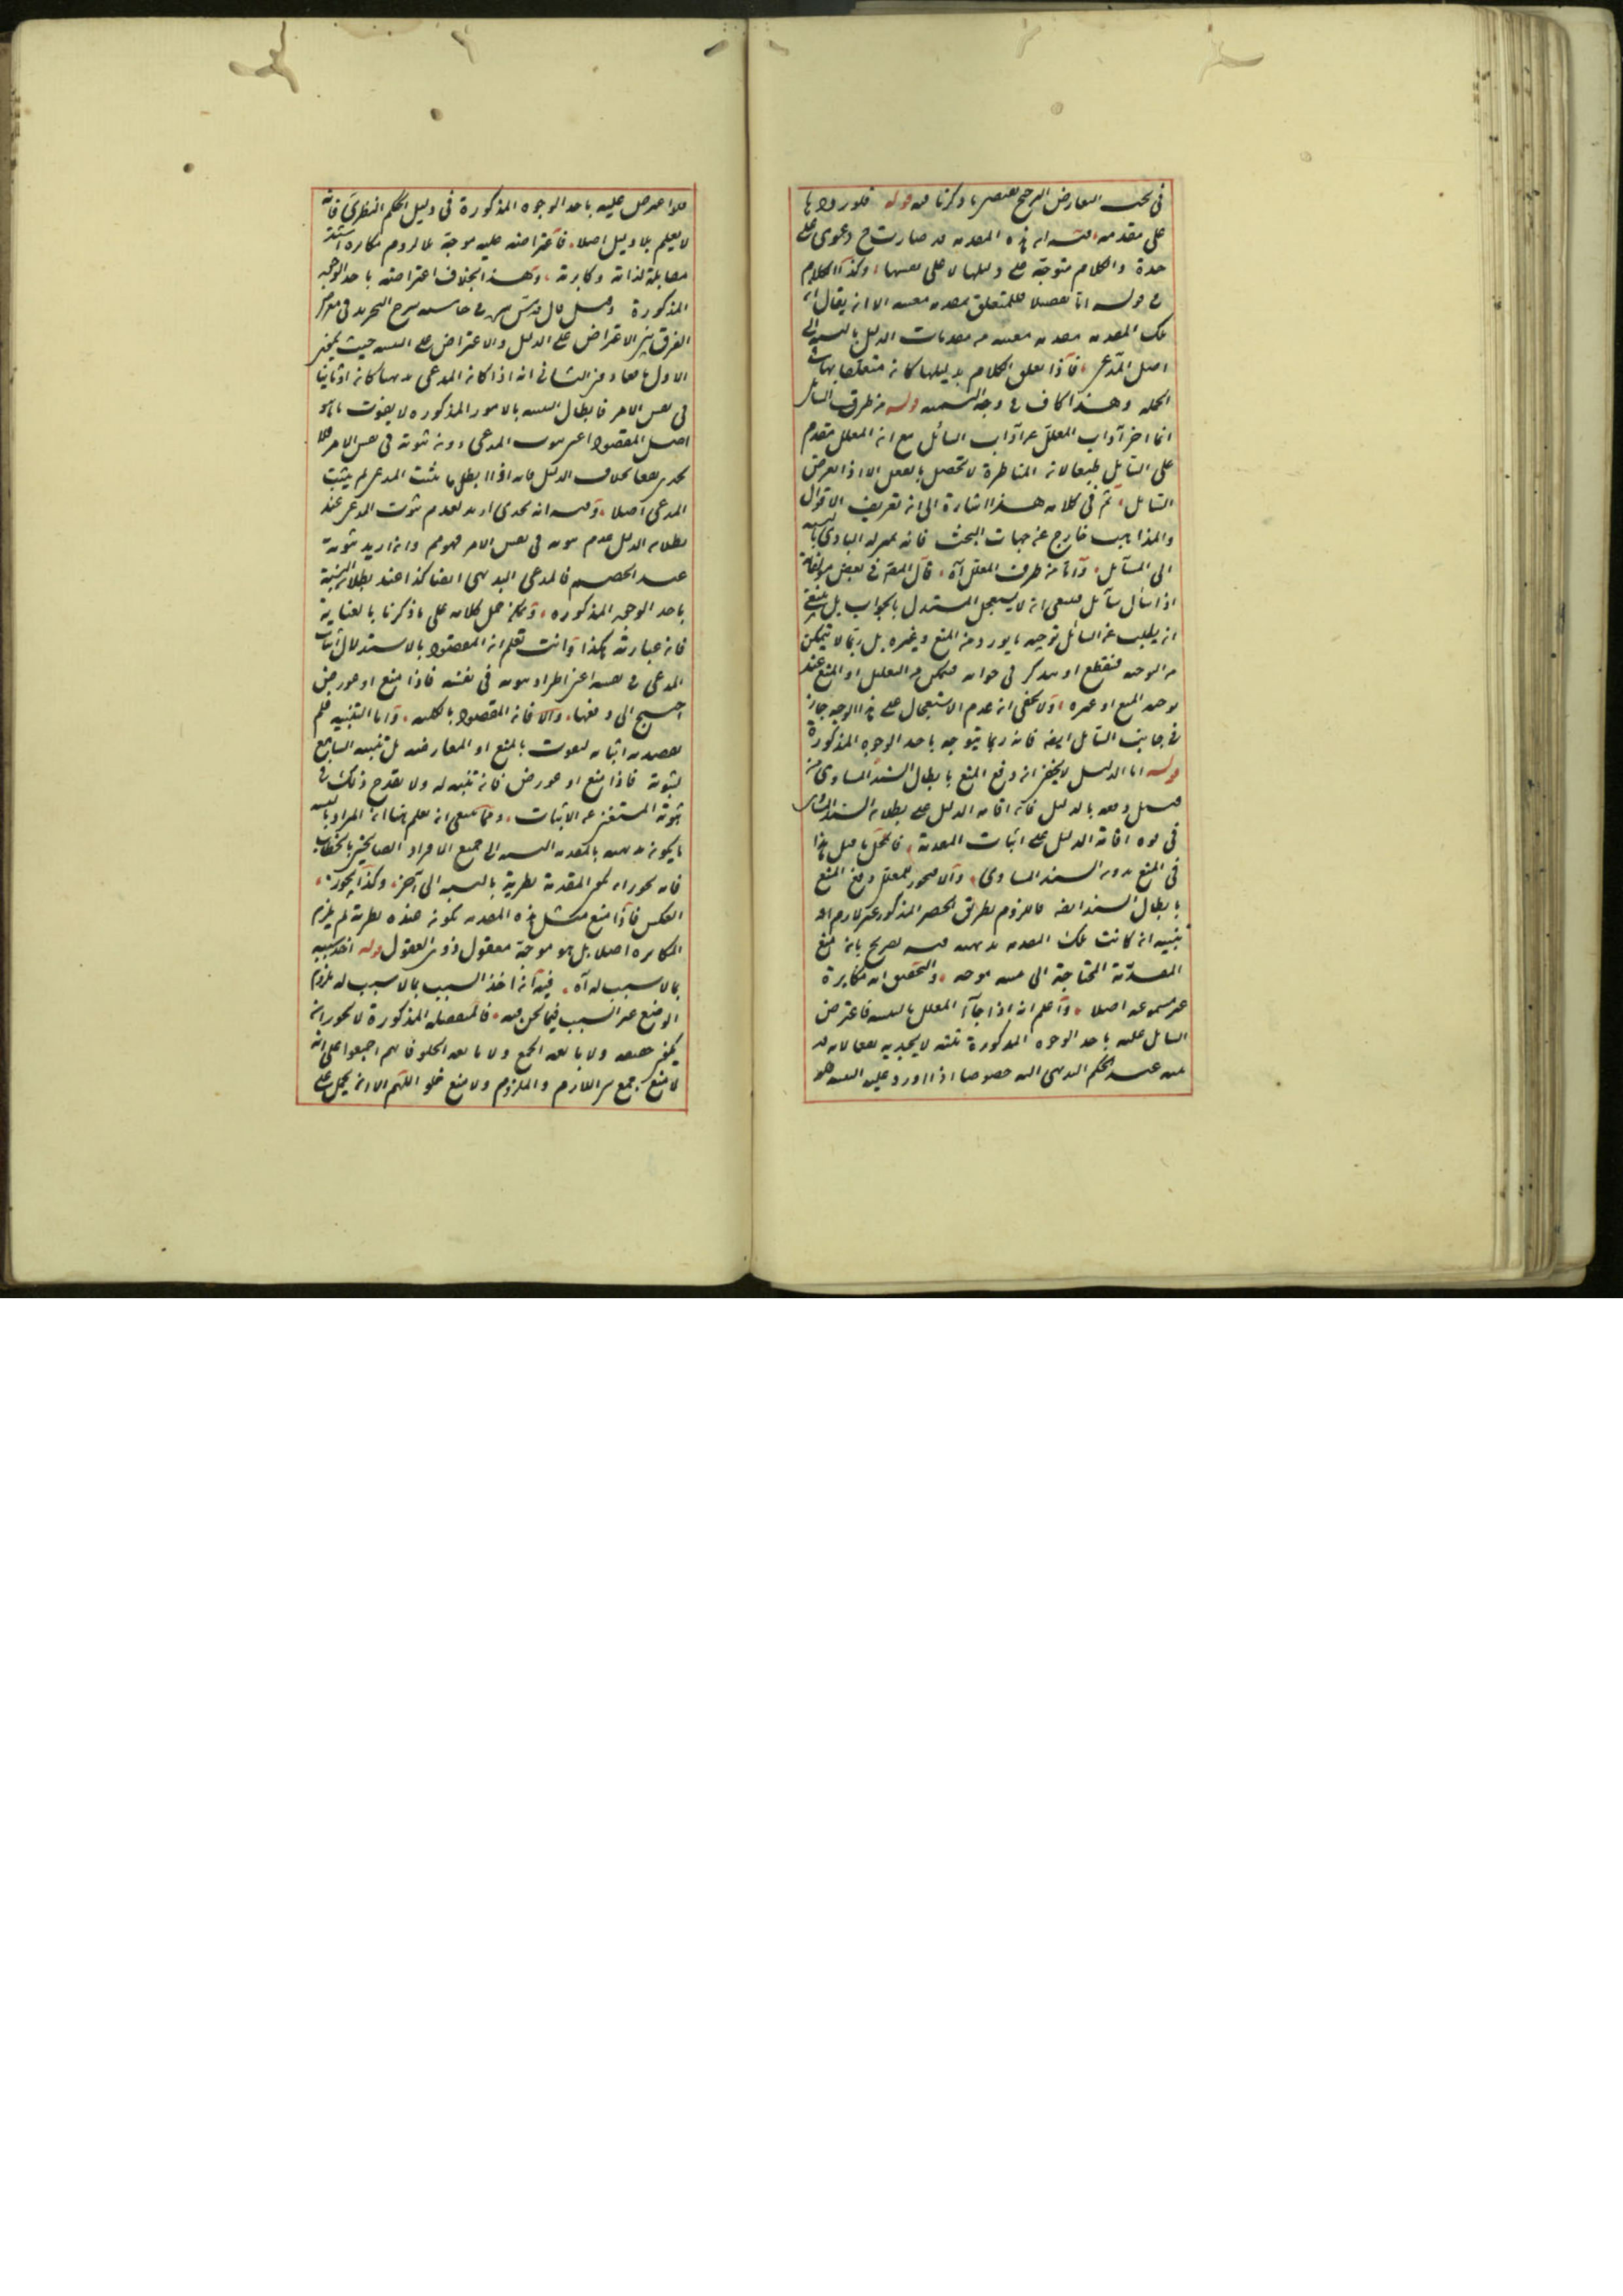 في بحث التعارض الترجيح فتبصر ما ذكرنا فيه قوله فلو ورد
على مقدمة فيه ان هذه المقدمة قد صارت ح دعوى على
حدة والكلام متوجه على دليلها لا على نفسها وكذا الكلام
في قوله اما تفصيلا فلمتعلق بمقدمة معينة الا ان يقال ان
تلك المقدمة مقدمة معينة من مقدمات الدليل بالنسبة الى
اصل المدعى فاذا تعلق الكلام بدليلها كان متعلقا بها في
الجملة وهذا كاف في وجه التسمية قوله من طرف السائل
انما اخر آداب المعلل عن آداب السائل مع ان المعلل مقدم
على السائل طبعا لان المناظرة لا تحصل بالفعل الا اذا تعرض
السائل ثم في كلامه هذا اشارة الى ان تعريف الاقوال
والمذاهب خارج عن جهات البحث فانه بمنزلة المبادي بالنسبة
الى المسائل واما من طرف المعلل آه قال المص في بعض مؤلفاته
اذا سأل سائل فينبغي ان لا يستعجل المستدل بالجواب بل ينبغي
ان يطلب عن السائل توجيه ما يورد من المنع وغيره بل ربما لا يتمكن
من التوجيه فينقطع او يتذكر في جوابه فيتمكن من التعليل او المنع عند
توجيه المنع او غيره ولا يخفى ان عدم الاستعجال على هذا الوجه جاز
في جانب السائل ايضا فانه ربما يتوجه باحد الوجوه المذكورة
قوله اما الدليل لا يخفى ان دفع المنع بابطال السند المساوي من
قبيل دفعه بالدليل فانه اقامة الدليل على بطلان السند المساوي
في قوة اقامة الدليل على اثبات المقدمة
في المنع بدون السند المساوي والا فيجوز للمعلل دفع المنع
بابطال السند ايضا فاللزوم بطريق الحصر المذكور غير لازم او
تنبيه ان كانت تلك المقدمة بديهية فيه تصريح بان منع
المقدمة المحتاجة الى تنبيه موجه والتحقيق انه مكابرة
غير مسموعة اصلا واعلم انه اذا جاء المعلل بالتنبيه فاعترض
السائل عليه باحد الوجوه المذكورة ثلثة لا يجديه نفعا لانه قد
تبين عند الحكم البديهي خصوصا اذا اورد عليه التنبيه
فلو اعترض عليه باحد الوجوه المذكورة في دليل الحكم النظري فانه
لا يعلم بلا دليل اصلا فاعتراضه عليه موجه
مقابلة لذاته وكابرته وهذا بخلاف اعتراضه باحد الوجوه
المذكورة وقيل قال قدس سره في حاشية شرح التجريد في معرض
الفرق بين الاعتراض على الدليل والاعتراض على التنبيه حيث
الاول نفعا دون الثاني انه اذا كان المدعى بديهيا كان ثابتا
في نفس الامر فابطال التنبيه بالامور المذكورة لا يفوت ما هو
اصل المقصود اعني ثبوت المدعى دون ثبوته في نفس الامر فلا
يجدي نفعا بخلاف الدليل فانه اذا ابطل ما يثبت المدعى لم يثبت
المدعى اصلا وفيه انه يجدي اريد بعدم ثبوت المدعى عند
بطلان الدليل عدم ثبوته في نفس الامر فهو مم وان اريد ثبوته
عند الخصم فالمدعى البديهي ايضا كذا عند بطلان التنبيه
باحد الوجوه المذكورة ويمكن حمل كلامه على ما ذكرنا بالعناية
فان عبارته هكذا وانت تعلم ان المقصود بالاستدلال اثبات
المدعى في نفسه اعني اطراد ثبوته في نفسه فاذا منع او عورض
احتيج الى دفعها والا فات المقصود بالكلية واما التنبيه فلم
يقصد به اثباته ليفوت بالمنع او المعارضة بل تنبيه السامع
لثبوته فاذا منع او عورض فات تنبيهه له ولا يقدح ذلك في
ثبوته المستغني عن الاثبات ومما ينبغي ان يعلم هنا ان المراد
ما يكون بديهية بالنسبة الى جميع الافراد
فانه يجوز ان يكون المقدمة نظرية بالنسبة الى آخر وكذا يجوز
العكس فاذا منع مثل هذه المقدمة بكونه عنده نظرية لم يلزم
المكابرة اصلا بل هو موجه معقول ذوي العقول قوله اخذ سببه
بما لا سبب له آه فيه انه اخذ السبب بما لا سبب له
الوضع عن السبب فيما نحن فيه فالمنفصلة المذكورة لا يجوز ان
يكون حقيقية ولا مانعة الجمع ولا مانعة الخلو فانهم اجمعوا على انه
لا منع جمع بين اللازم والملزوم ولا منع خلو اللهم الا ان يحمل على